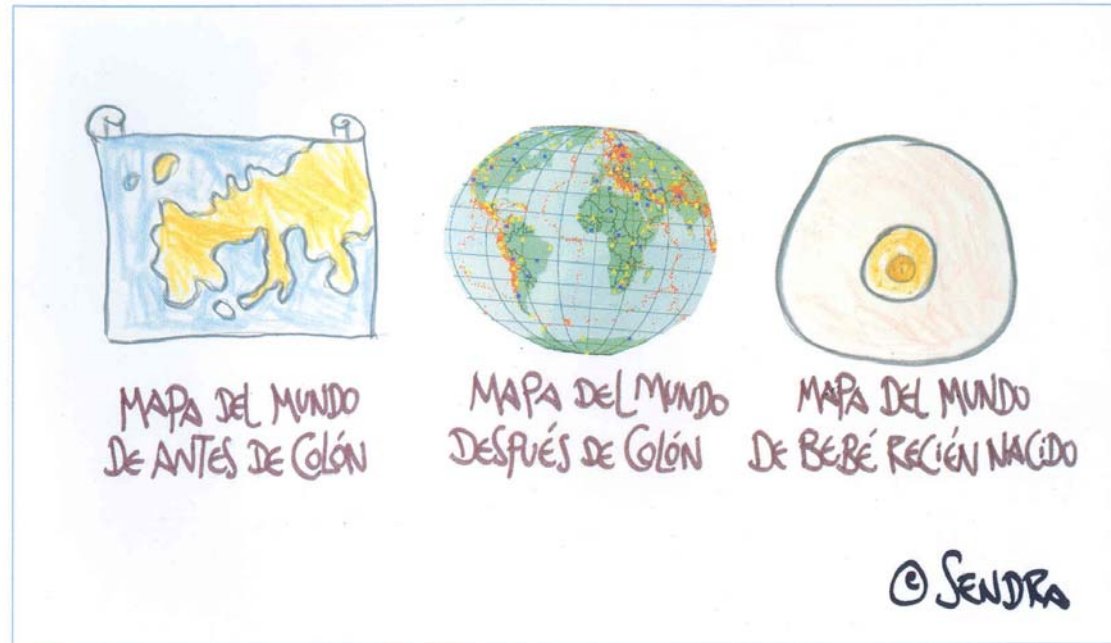 MAPA DEL MUNDO
DE ANTES DE COLÓN
MAPA DEL MUNDO
DESPUÉS DE COLÓN
MAPA DEL MUNDO
DE BEBÉ RECIÉN NACIDO
© SENDRA